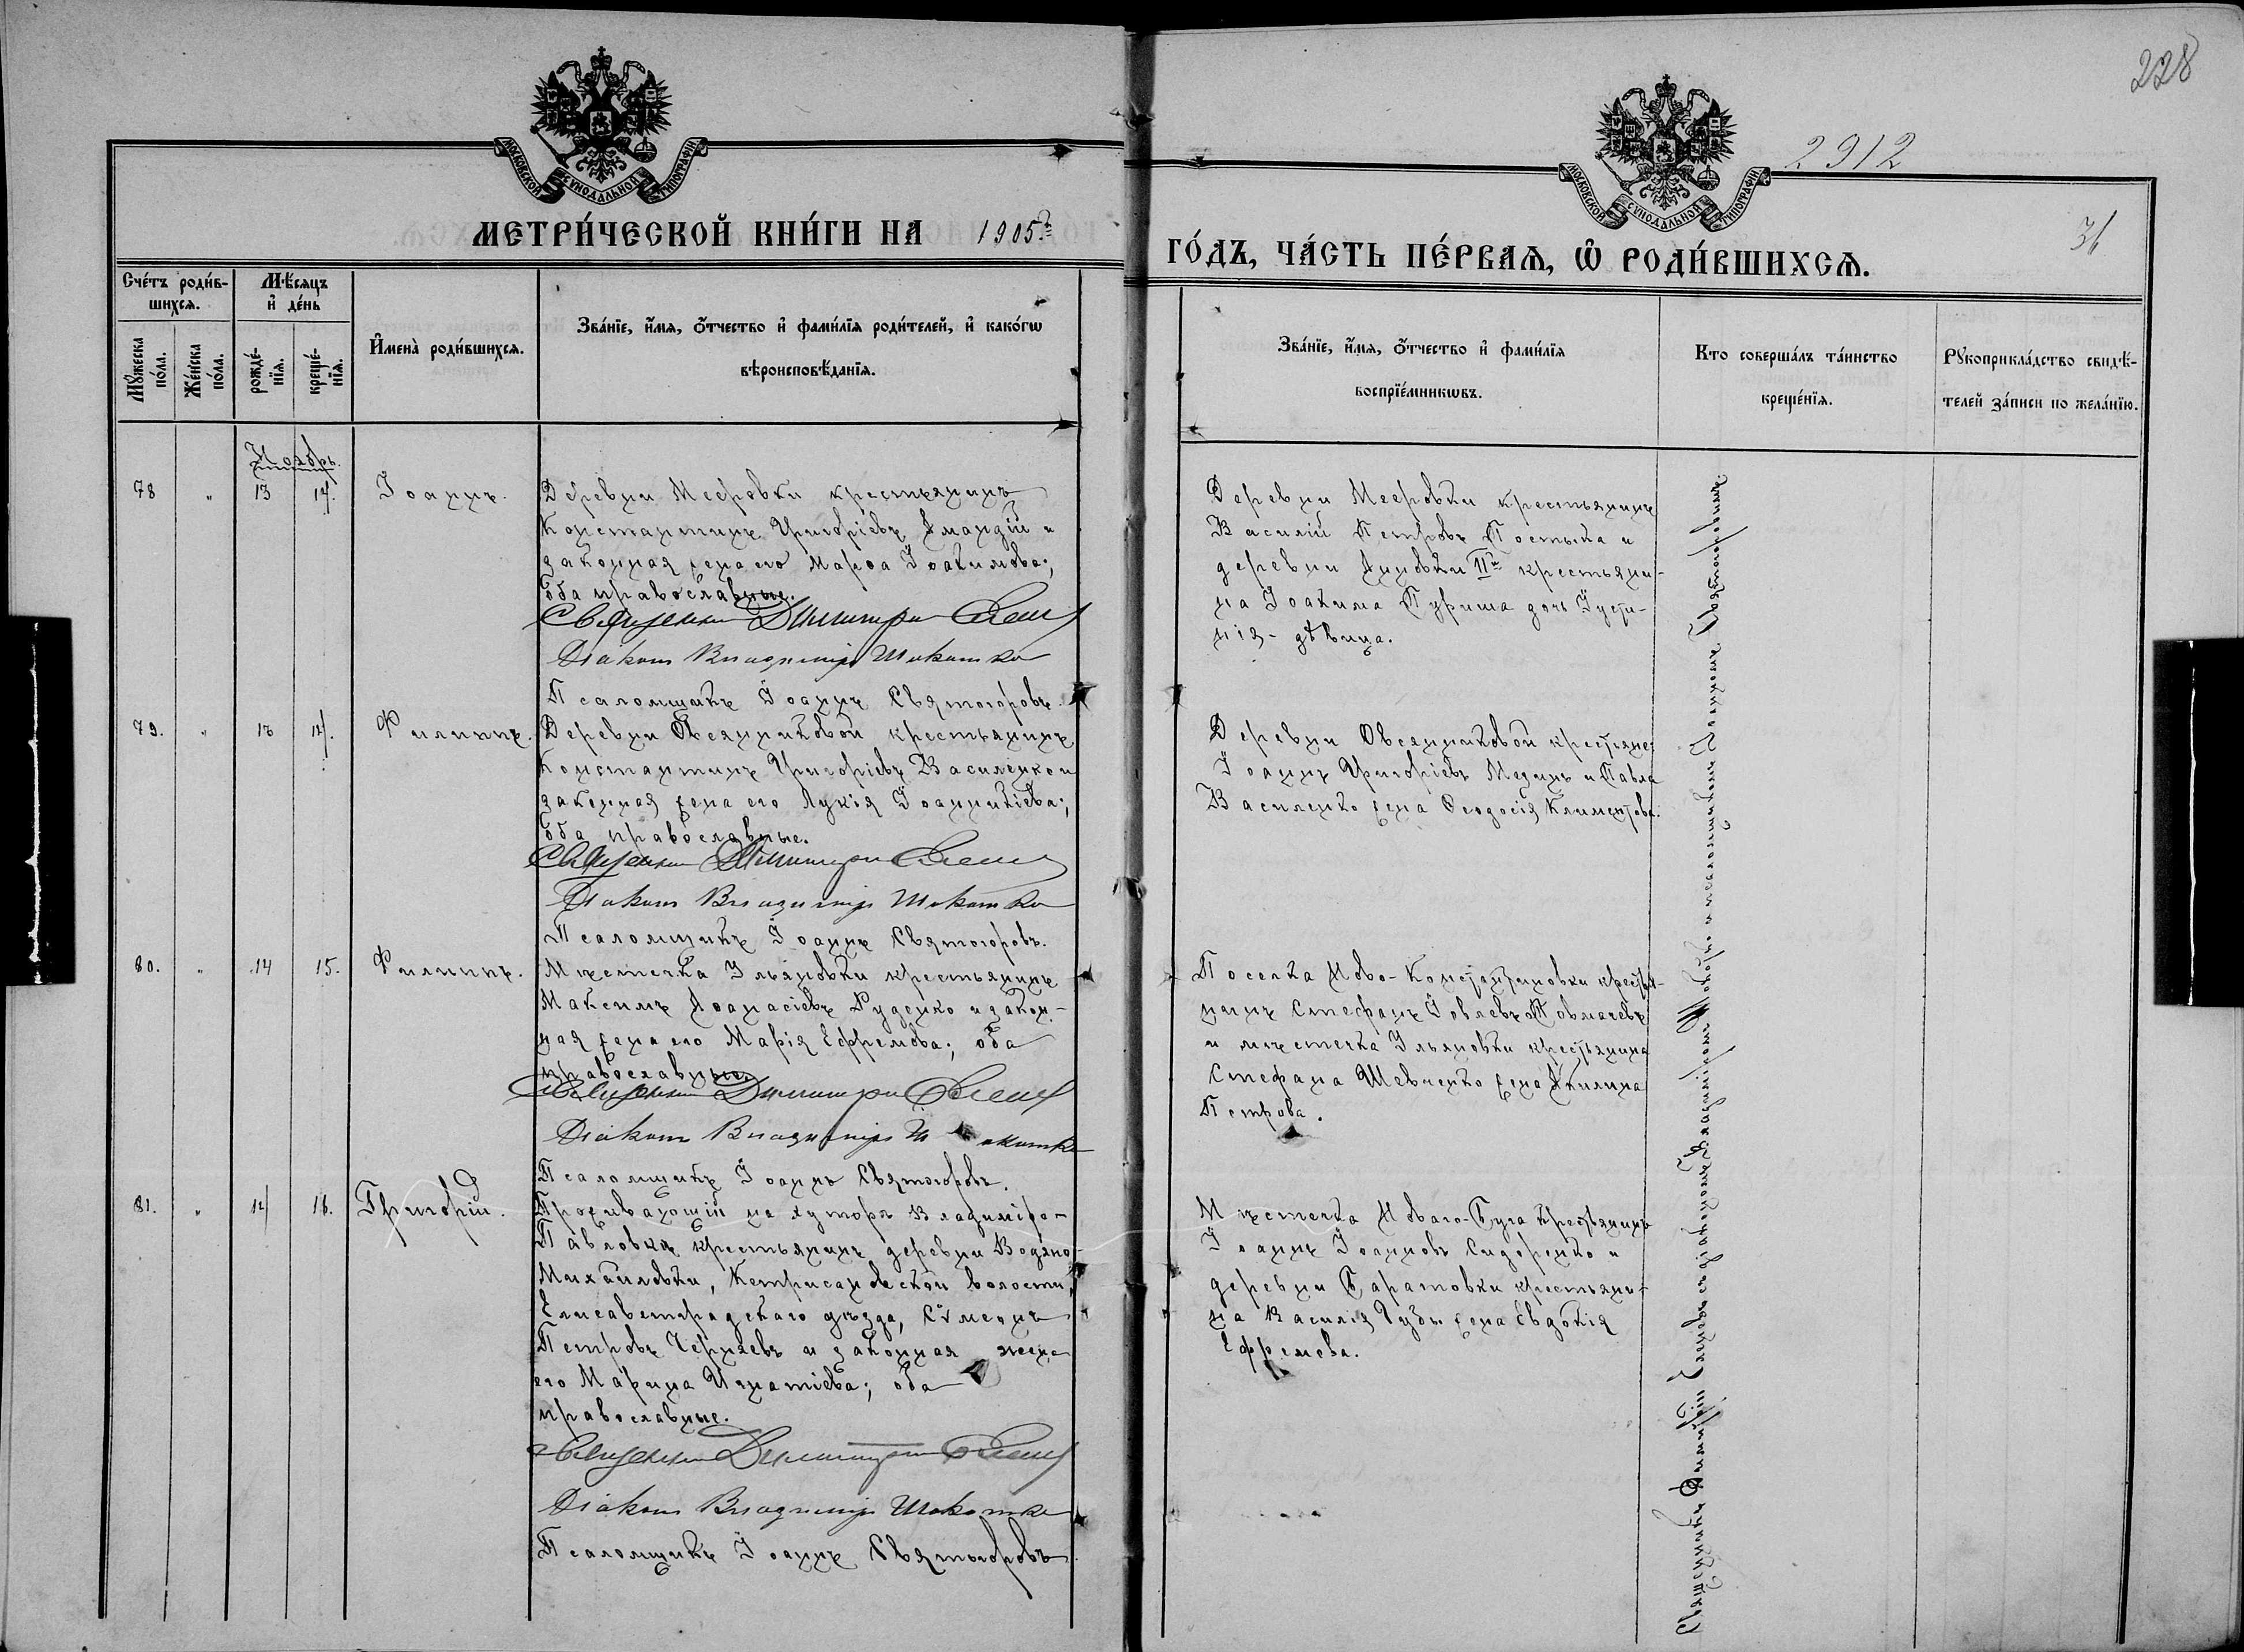 228
2912
36
МОСКОВСКОЙ СѴНОДАЛЬНОЙ ТИПОГРАФІИ
МОСКОВСКОЙ СѴНОДАЛЬНОЙ ТИПОГРАФІИ
МЕТРИ́ЧЕСКОЙ КНИ́ГИ НА 1905й
ГО́ДЪ, ЧА́СТЬ ПЕ́РВАѦ, Ѡ҆ РОДИ́ВШИХСѦ.
Сче́тъ роди́в-
шихсѧ.
Мꙋ́жеска по́ла.
Же́нска по́ла.
Мѣ́сѧцъ
и҆ де́нь
рожде́-
нїѧ.
креще́-
нїѧ.
И҆мена̀ роди́вшихсѧ.
Зва́нїе, и҆́мѧ, ѻ҆́тчество и҆ фамѝлїѧ роди́телей, и҆ како́гѡ
вѣроисповѣ́данїѧ.
Зва́нїе, и҆́мѧ, ѻ҆́тчество и҆ фамѝлїѧ
воспрїе́мникѡвъ.
Кто соверша́лъ та́инство
креще́нїѧ.
Рꙋкоприкла́дство свидѣ́-
телей за́писи по жела́нїю.
Ноябрь.
78 " 13 14. Іоаннъ.
Деревни Мееровки крестьянинъ
Константинъ Григоріевъ Амандій и
законная жена его Марѳа Іоакимова;
оба православные.
Священникъ Димитрій
Діаконъ Владиміръ Шокотко
Псаломщикъ Іоаннъ Святогоровъ.
Деревни Мееровки крестьянинъ
Василій Петровъ Постыка и
деревни Анновки IIй крестьяни-
на Іоакима Пуриша дочь Іусти-
нія - дѣвица.
79. " 13 14. Филиппъ.
Деревни Овсянниковой крестьянинъ
Константинъ Григоріевъ Василенко и
законная жена его Лукія Іоанникіева;
оба православные.
Священникъ Димитрій
Діаконъ Владиміръ Шокотко
Псаломщикъ Іоаннъ Святогоровъ.
Деревни Овсянниковой крестьяне:
Іоаннъ Григоріевъ Мединъ и Павла
Василенко жена Ѳеодосія Климентова.
80. " 14 15. Филиппъ.
Мѣстечка Ульяновки крестьянинъ
Максимъ Аѳанасіевъ Руденко и закон-
ная жена его Марія Ефремова; оба
православные.
Священникъ Димитрій
Діаконъ Владиміръ Шокотко
Псаломщикъ Іоаннъ Святогоровъ.
Поселка Ново-Константиновки крестья-
нинъ Стефанъ Іовлевъ Товмачевъ
и мѣстечка Ульяновки крестьянина
Стефана Шевченко жена Акилина
Петрова.
81. " 14 16. Григорій.
Проживающій на хуторѣ Владиміро-
Павловкѣ крестьянинъ деревни Водяно-
Михайловки, Кетрисановской волости,
Елисаветградскаго уѣзда, Сѵмеонъ
Петровъ Черняевъ и законная жена
его Марина Игнатіева; оба
православные.
Священникъ Димитрій
Діаконъ Владиміръ Шокотко
Псаломщикъ Іоаннъ Святогоровъ
Мѣстечка Новаго-Буга крестьянинъ
Іоаннъ Іоанновъ Сидоренко и
деревни Баратовки крестьяни-
на Василія Губы жена Евдокія
Ефремова.
Священникъ Димитрій съ діакономъ Владиміромъ Шокотко и псаломщикомъ Іоанномъ Святогоровымъ